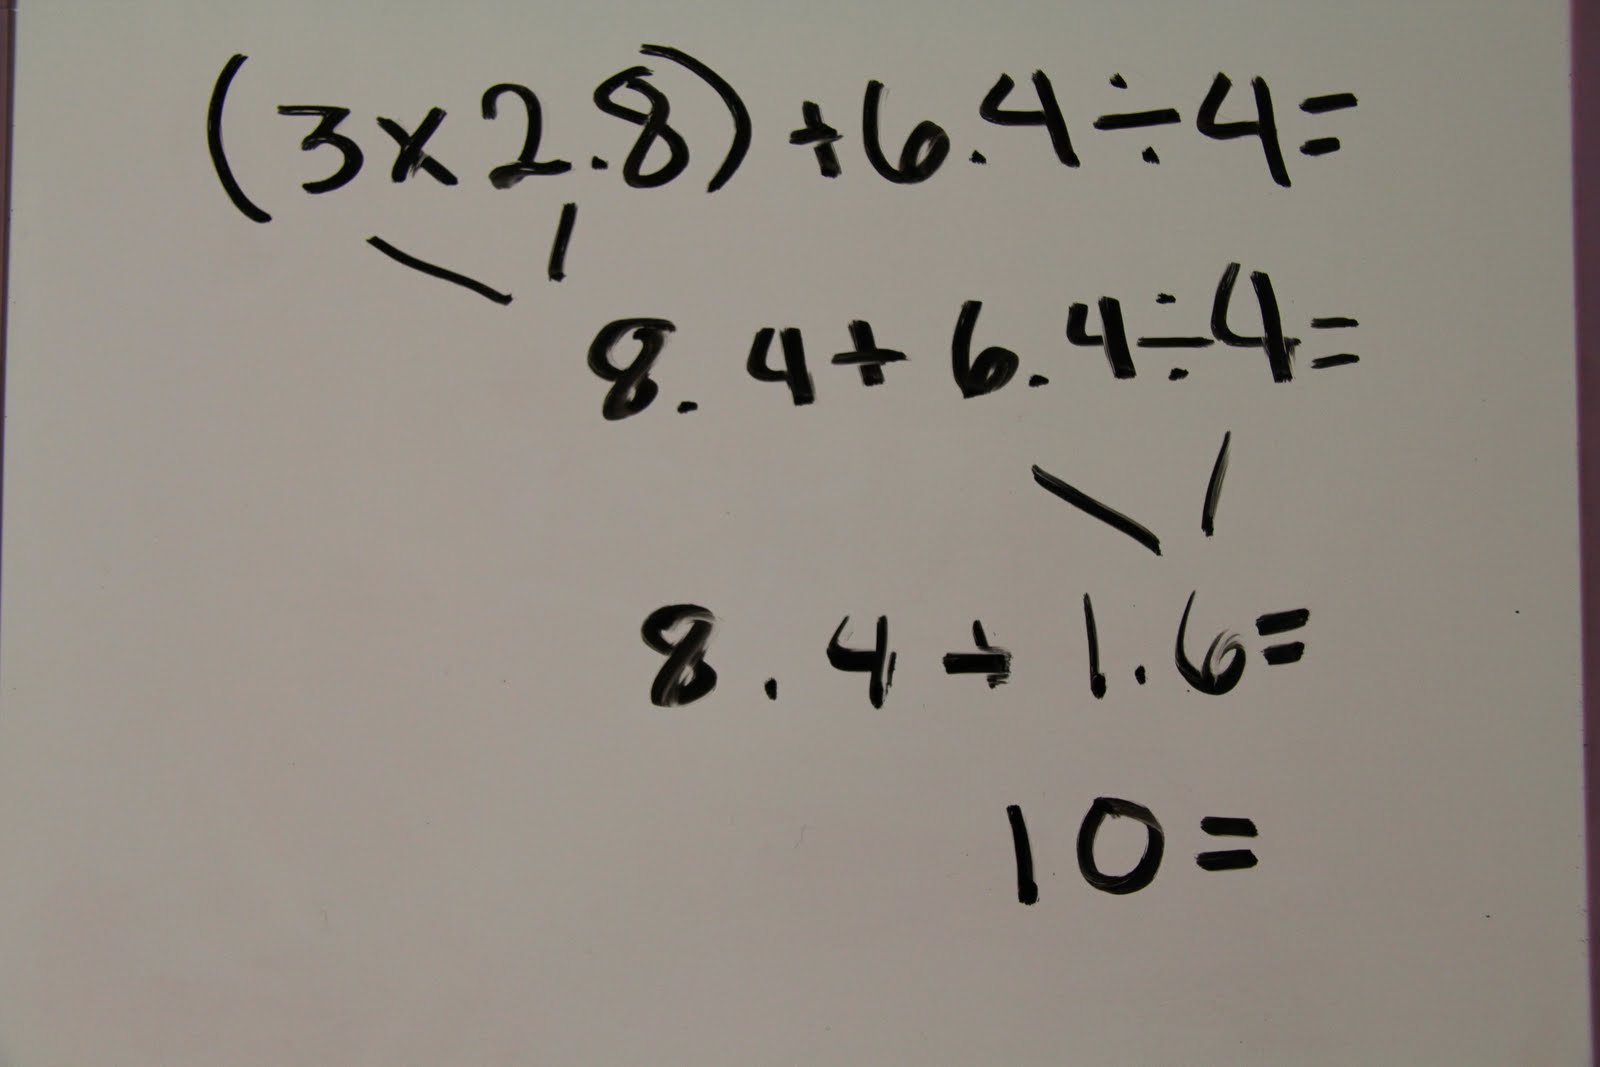 (3x2.8)+6.4÷4=
8.4+6.4÷4=
8.4+1.6=
10=